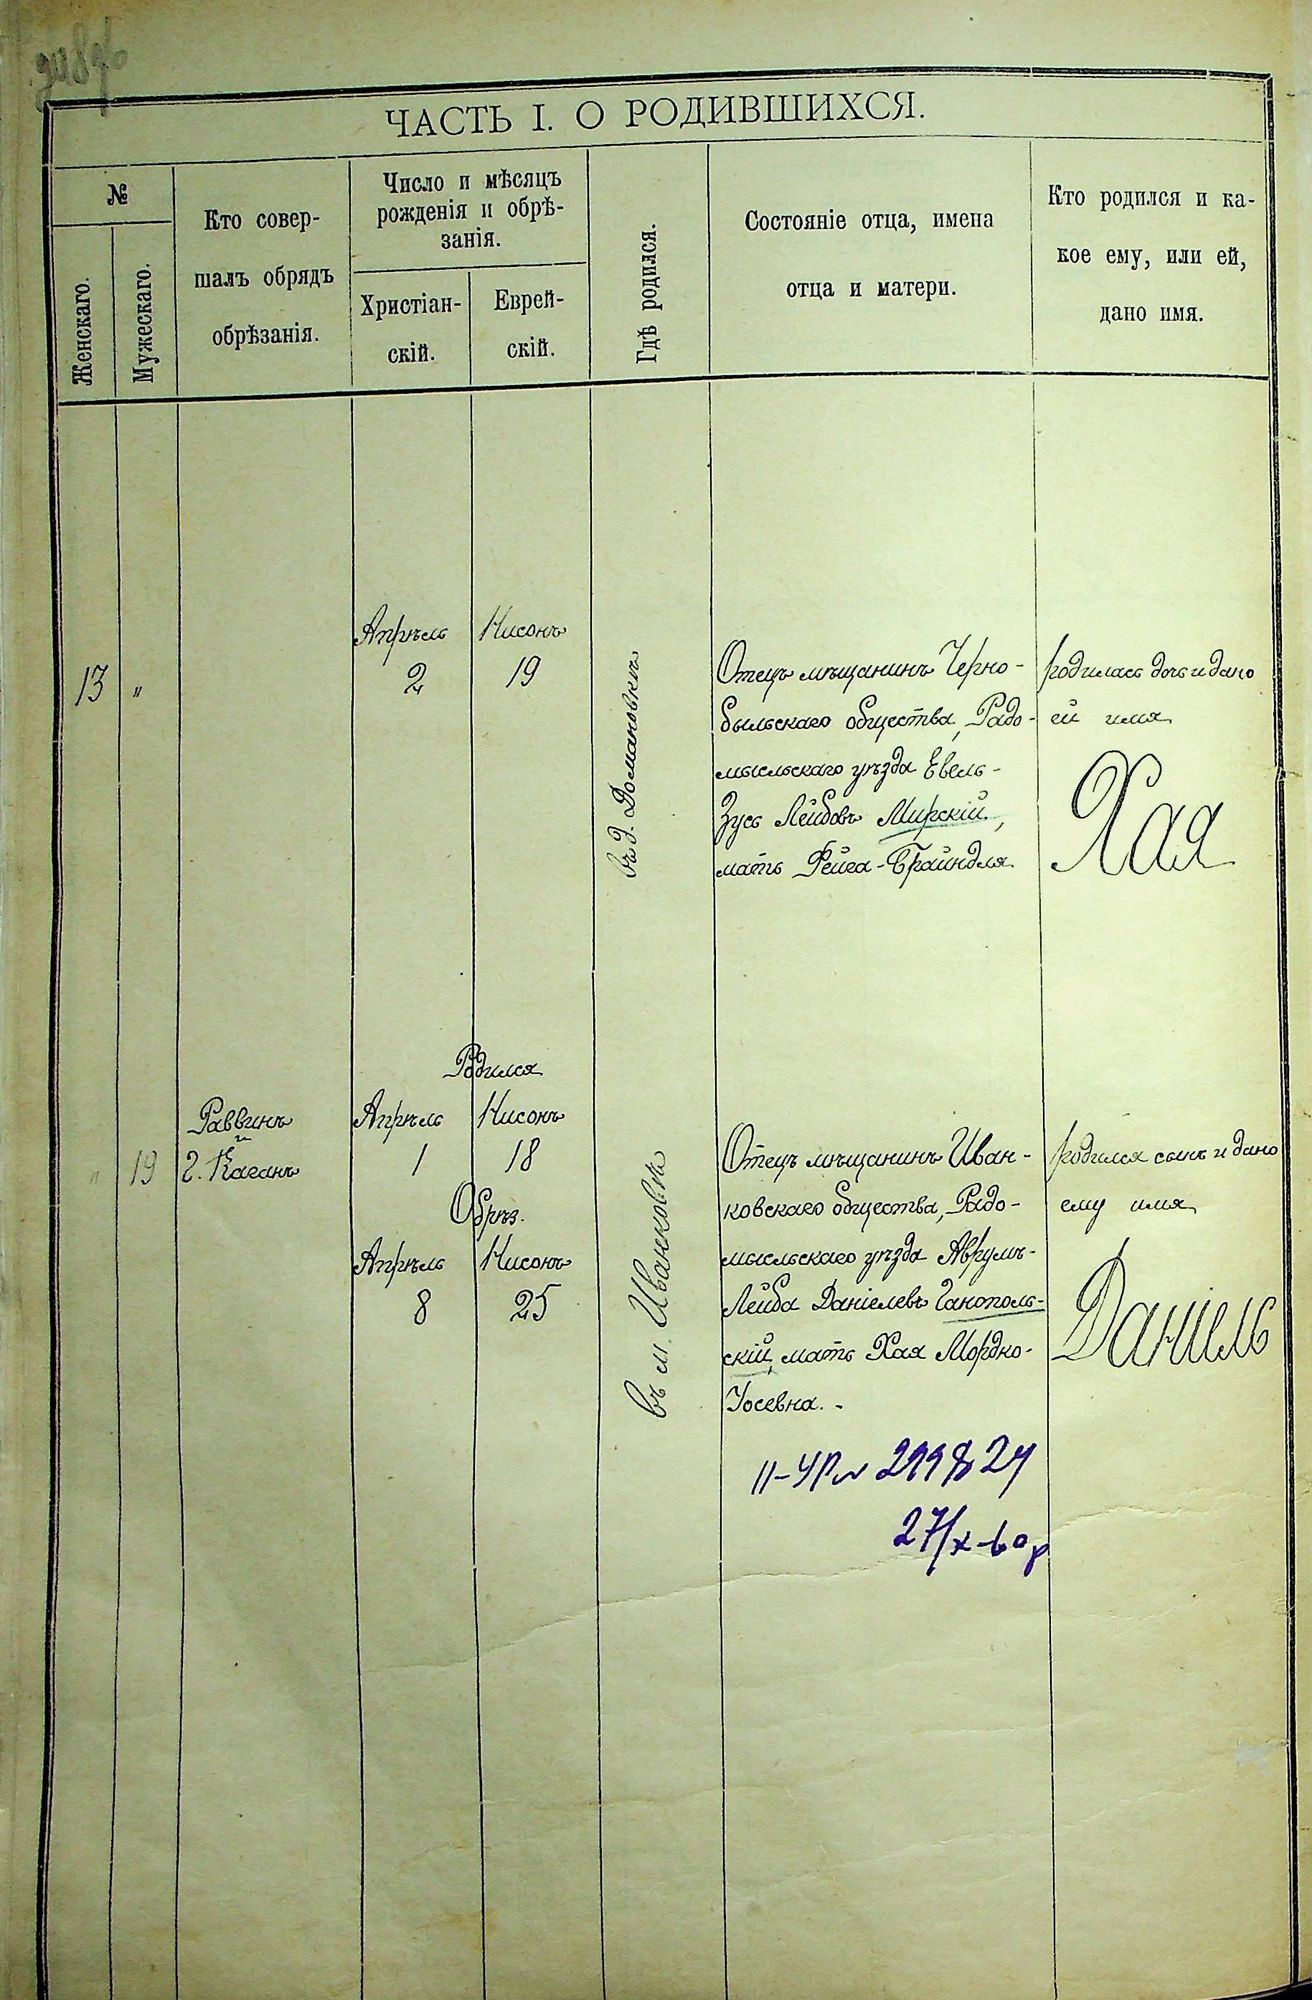 ЧАСТЬ I. О РОДИВШИХСЯ.
№
Женскаго.
Мужескаго.
Кто совер-
шалъ обрядъ
обрѣзанія.
Число и мѣсяцъ
рожденія и обрѣ-
занія.
Христіан-
скій.
Еврей-
скій.
Гдѣ родился.
Состояніе отца, имена
отца и матери.
Кто родился и ка-
кое ему, или ей,
дано имя.
13 "
Апрѣль
2
Нисонъ
19
въ д. Домановкѣ
Отецъ мѣщанинъ Черно-
быльскаго общества, Радо-
мысльскаго уѣзда Евель-
Зусь Лейбовъ Мирскій,
мать Фейга-Брайндля
родилась дочь и дано
ей имя
Хая
" 19
Раввинъ
и
Г. Каганъ
Родился
Апрѣль Нисонъ
1 18
Обрѣз.
Апрѣль Нисонъ
8 25
въ м. Иванковѣ
Отецъ мѣщанинъ Иван-
ковскаго общества, Радо-
мысльскаго уѣзда Аврумъ-
Лейба Даніелевъ Ганополь-
скій, мать Хая Мордко-
Іосевна. -
родился сынъ и дано
ему имя
Даніель
27/X-60 р